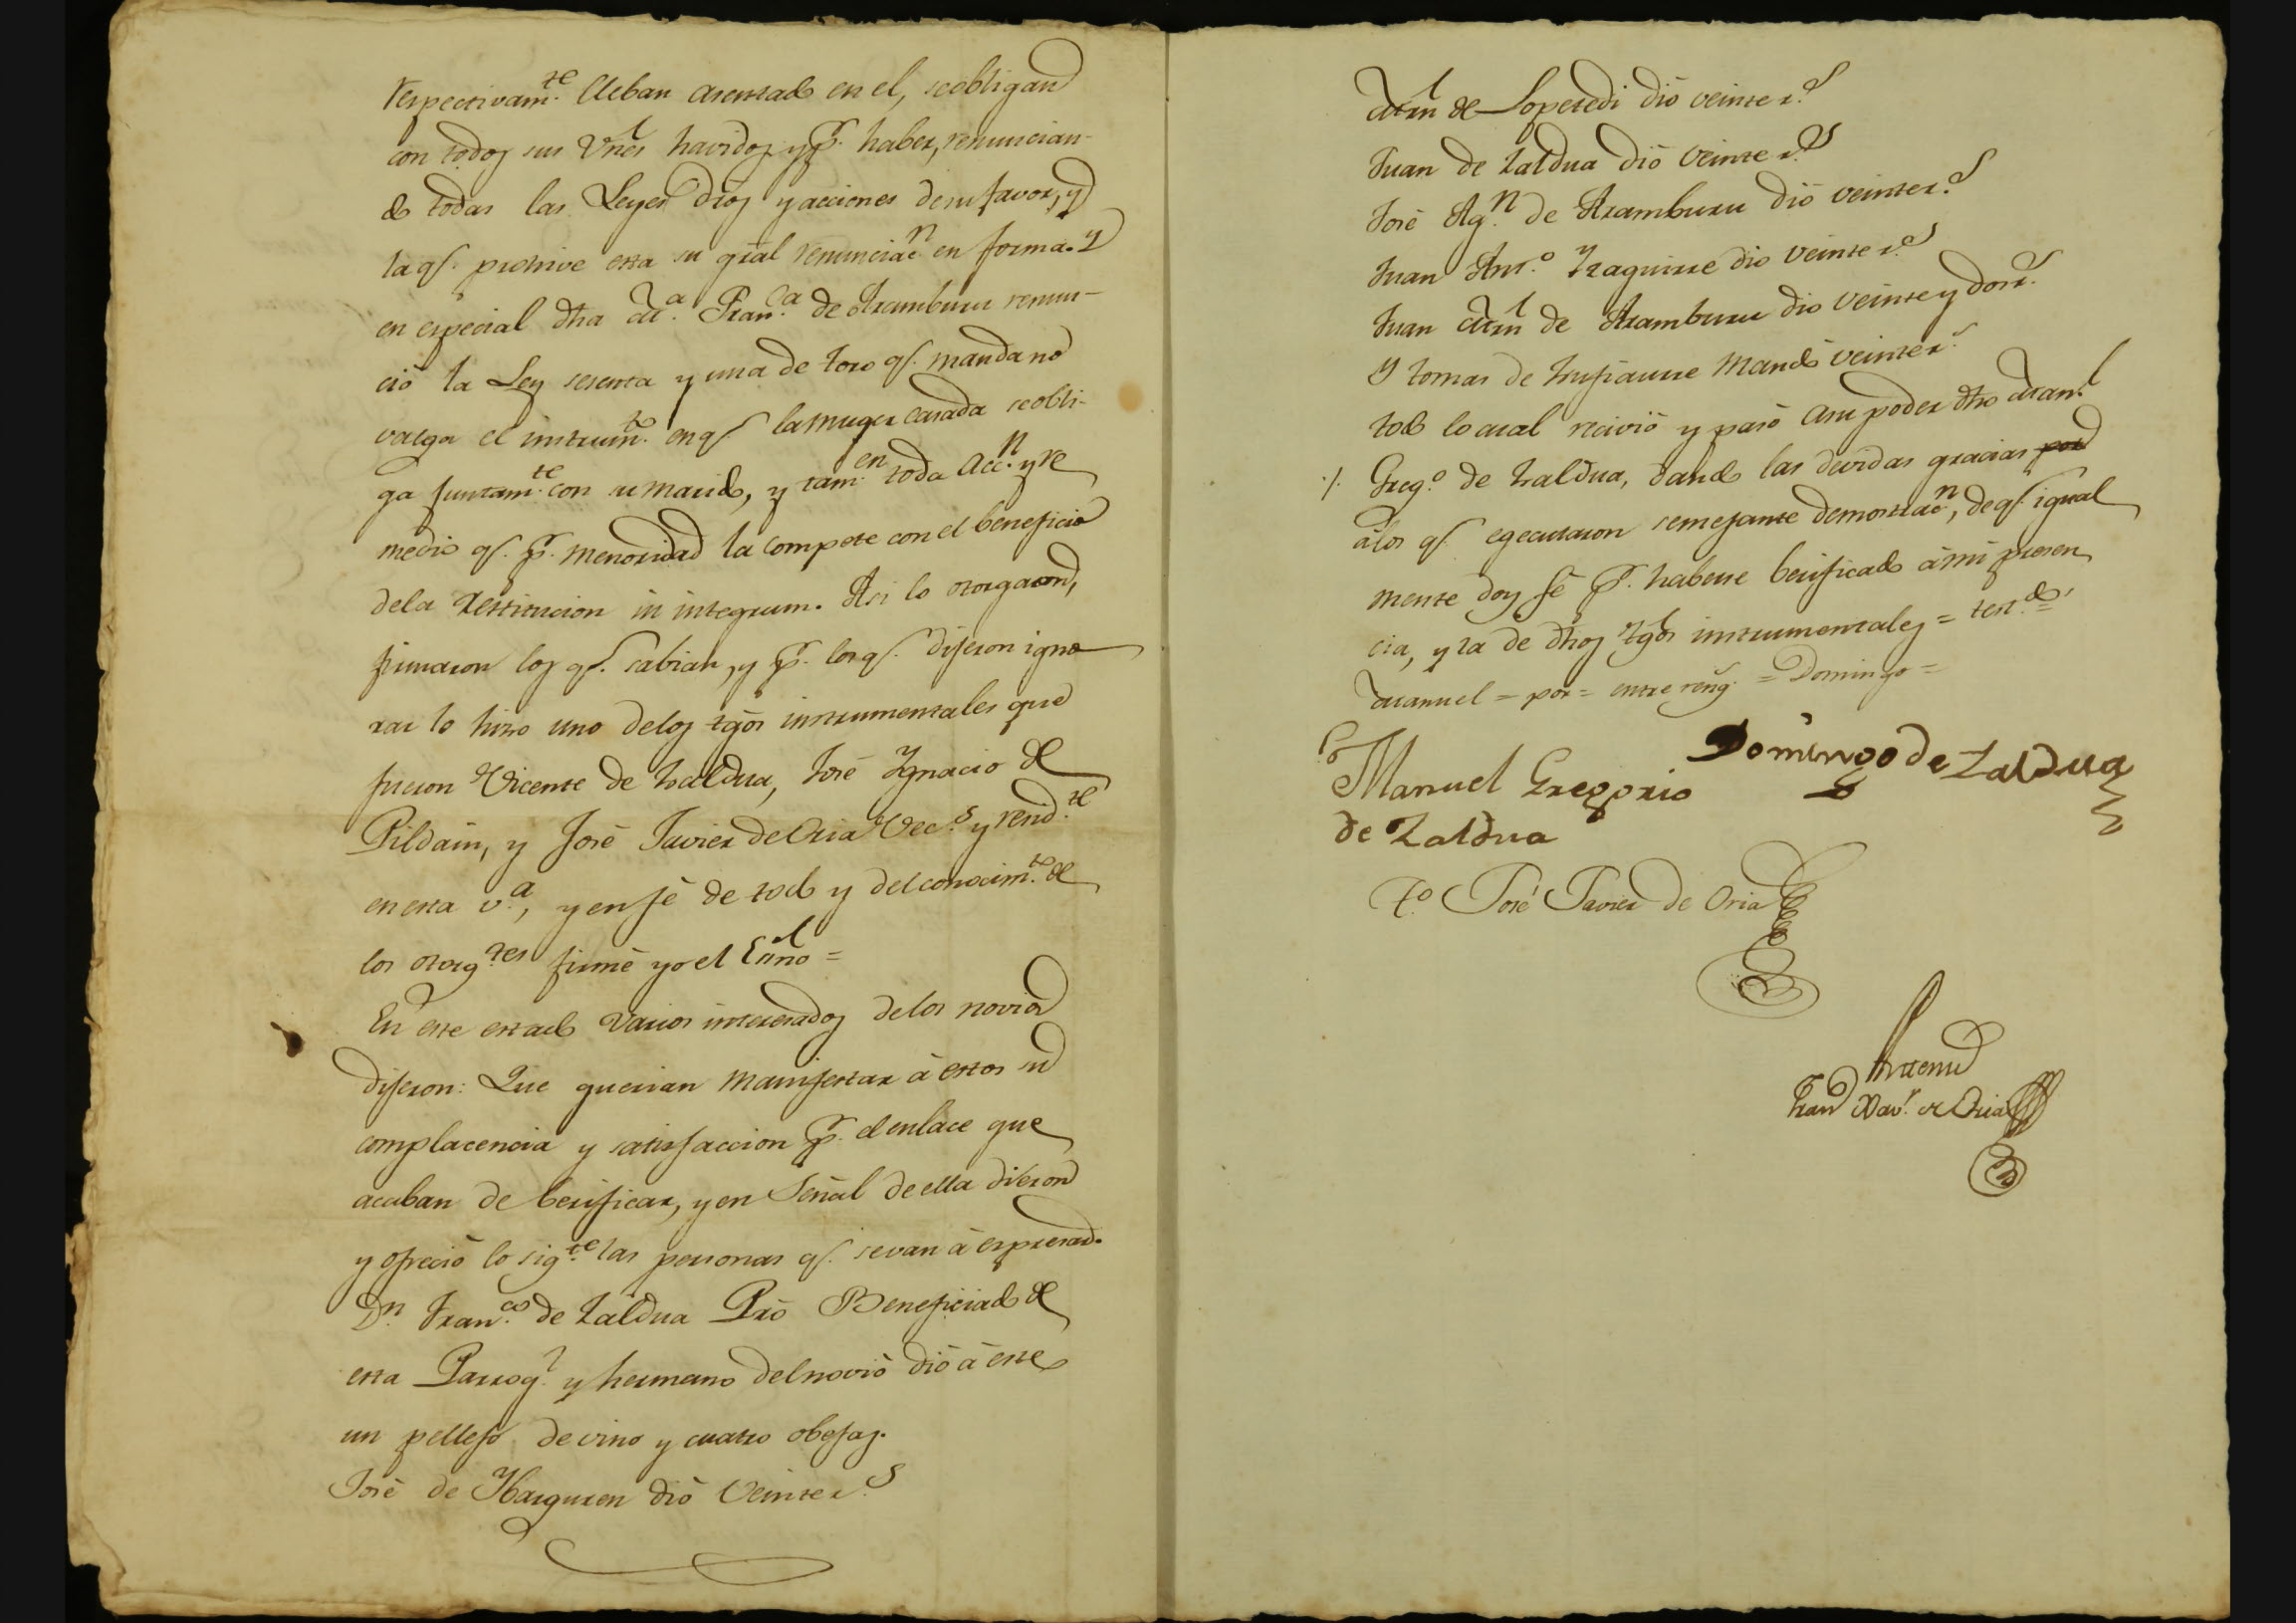 respectivam.te lleban asentado en el, se obligan
con todos sus Vnes havidos y pr. haber, renuncian-
do todas las Leyes dros y acciones de su favor, y
la q.e prohive esta su gral renunciac.n en forma. Y
en especial dha M.a Fran.ca de Aramburu renun-
ció la Ley sesenta y una de toro q.e manda no
valga el instrum.to en q.e la muger casada se obli-
ga juntam.te con su marido, y tam.en toda acc.n y re
medio q.e pr. menoridad la compete con el beneficio
de la restitucion in integrum. Asi lo otorgaron,
firmaron los q.e sabian, y pr. los q.e dijeron igno
rar lo hizo uno de los tgos instrumentales que
fueron Vicente de Zaldua, José Ygnacio de
Pildain, y José Javier de Oria Vec.s y resid.te
en esta v.a, y en fé de todo y del conocim.to de
los otorg.tes firmé yo el Esno =
En este estado varios interesados de los novios
dijeron: Que querian manifestar á estos su
complacencia y satisfaccion pr. el enlace que
acaban de berificar, y en señal de ella dieron
y ofreció lo sig.te las personas q.e se van á espresar.
D.n Fran.co de Zaldua Pro Beneficiado de
esta Parroq.l y hermano del novio dió á este
un pellejo de vino y cuatro obejas.
José de Ybarguren dió veinte r.s
Mrn de Loperedi dió veinte r.s
Juan de Zaldua dió veinte r.s
José Ag.n de Aramburu dió veinte r.s
Juan Ant.o Yzaguirre dio veinte r.s
Juan Mrn de Aramburu dio veinte y dos r.s
Y tomas de mandó veinte r.s
todo lo cual recivió y pasó á su poder dho Man.l
Greg.o de Zaldua, dando las devidas gracias por
á los q.e egecutaron semejante demostrac.n, de q.e igual
mente doy fé pr. haberse berificado á mi presen
cia, y la de dhos tgos instrumentales = test.do =
Manuel = por = entre reng.s = Domingo =
Manuel Gregorio
de Zaldua
Domingo de Zaldua
T.o José Javier de Oria
Ante mi
Fran Xav.r de Oria